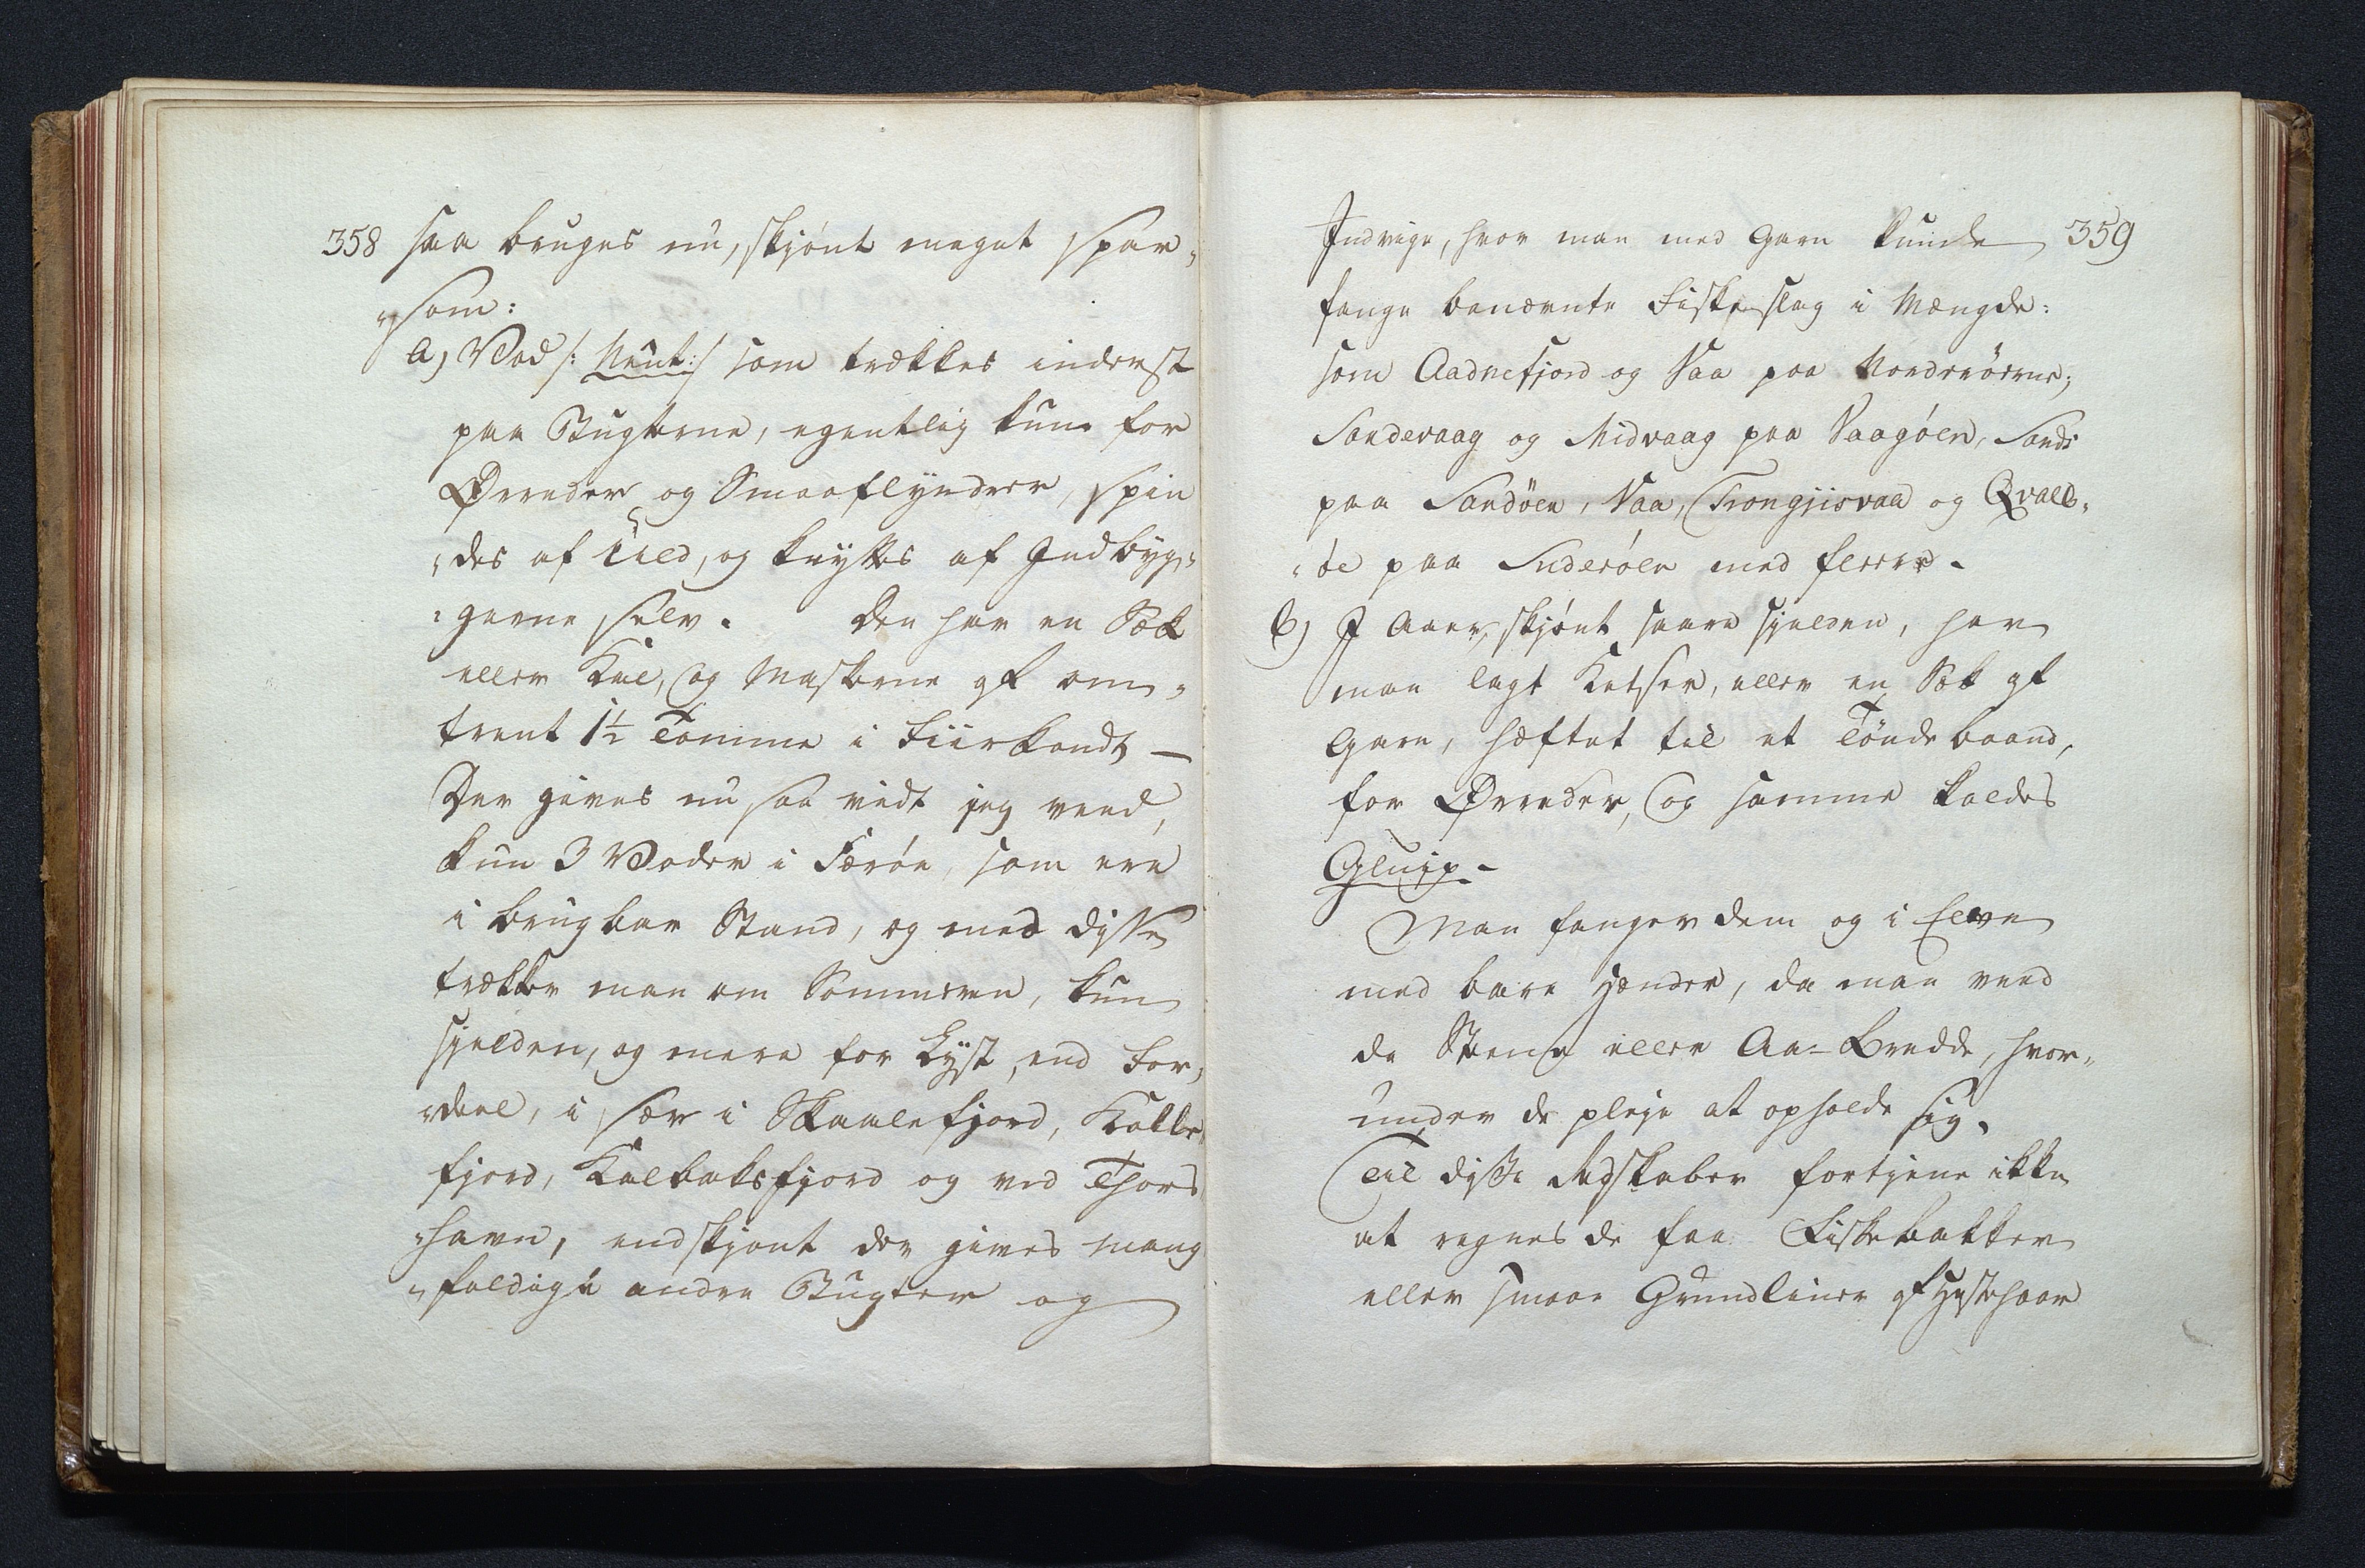 358 saa bruges nu, skjönt meget spar„
„som:
a) Vod /: Neut :/ som trækkes inderst
paa Bugterne, egentlig kun for
Ørreder og Smaaflyndrer, spin
„des af Uld, og knyttes af Indbyg„
„gerne selv. Den har en Sæk
eller Kul, og Maskerne af om„
trent 1½ Tomme i Fiirkandt —
Der gives nu saa vidt jeg veed,
kun 3 Voder i Færöe, som ere
i brugbar Stand, og med disse
trækker man om Sommeren, kun
sjelden, og mere for Lyst, end For„
„deel, i sær i Skaalefjord, Kolle
fjord, Kalbaksfjord og ved Thors
„havn, endskjönt der gives mang
„foldige andre Bugter og
Indvige, hvor man med Garn kunde 359
fange benævnte Fiskeslag i Mængde:
som Aadnefjord og Vaa paa Norderöerne;
Sandevaag og Midvaag paa Vaagöen, Sand
paa Sandöen, Vaa, Trongjisvaa og Qvalb„
„öe paa Suderöen med flerre.
b) I Aaer, skjönt saare sjelden, har
man lagt Ketser, eller en Sæk af
Garn, hæftet til et Töndebaand,
for Ørreder, og samme kaldes
Gluip.
Man fanger dem og i Elve
med bare Hænder, da man veed
de Steene eller Aa-Bredde, hvor„
under de pleje at opholde sig.
Til disse Redskaber fortjene ikke
at regnes de faa Fiskebakker
eller smaae Grundliner af Hestehaar